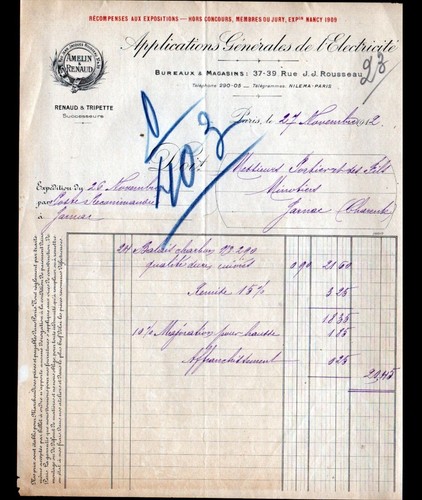 RÉCOMPENSES AUX EXPOSITIONS — HORS CONCOURS, MEMBRES DU JURY, EXPon NANCY 1909
Applications Générales de l'Electricité
AMELIN & RENAUD
BUREAUX & MAGASINS: 37-39 Rue J.J. Rousseau
23
Téléphone 290-05 — Télégrammes RILEMA-PARIS
RENAUD & TRIPETTE
Successeurs
Paris, le 27 Novembre 1912
403
Doit
Messieurs Portier et ses Fils
Minotiers
Jarnac (Charente)
Expédition du 26 Novembre
par Poste Recommandée
à Jarnac
24 Balais charbon No 290
qualité dure, cuivrés 0,90 21 60
Remise 15% 3 25
18 35
10% Majoration pour hausse 1 85
Affranchissement 0 25
20,45